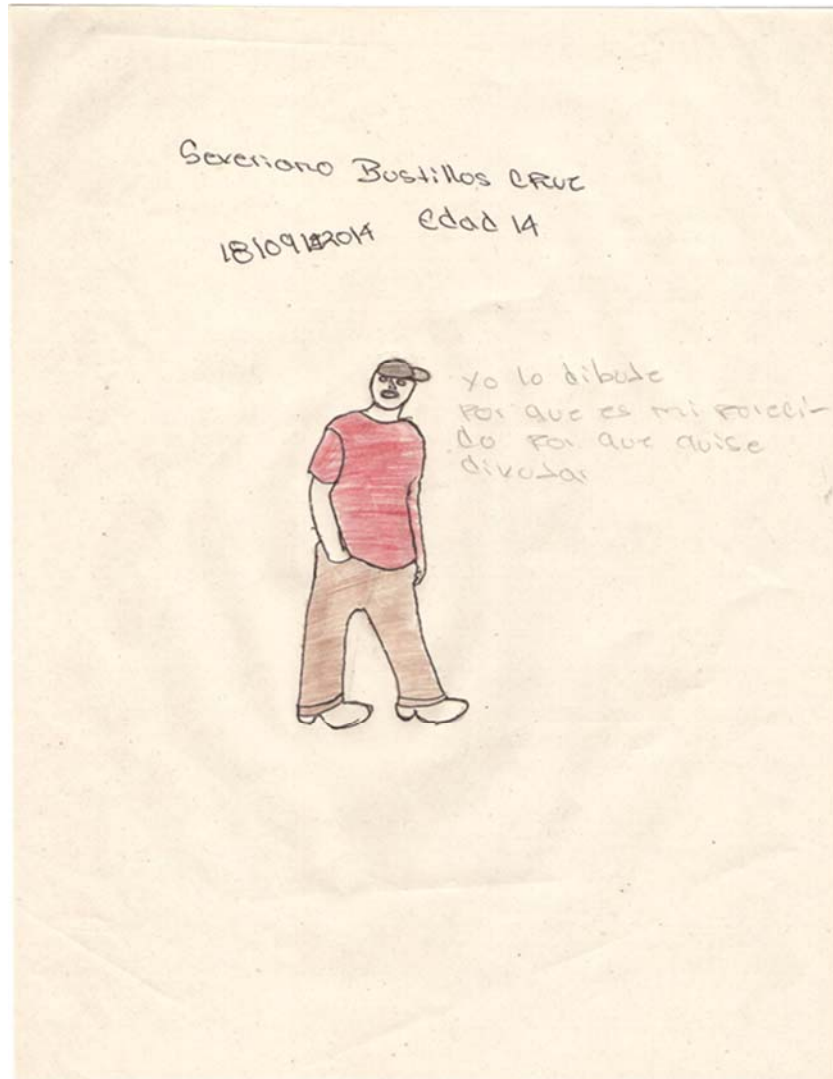 Severiano Bustillos CRUZ
18/09/2014 Edad 14
Yo lo dibuje
Por que es mi pareci-
do Por que quise
divujar